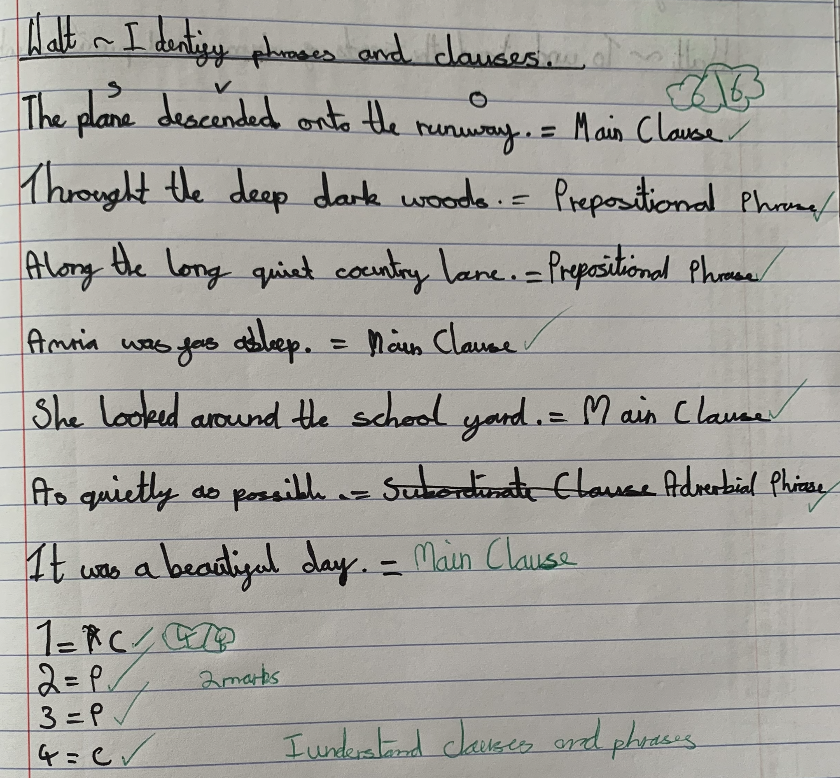 Walt ~ Identify phrases and clauses.
6/6
S V O
The plane descended onto the runway. = Main Clause ✓
Throught the deep dark woods. = Prepositional Phrase ✓
Along the long quiet country lane. = Prepositional Phrase ✓
was fas asleep. = Main Clause ✓
She looked around the school yard. = Main Clause ✓
As quietly as possible. = Subordinate Clause Adverbial Phrase ✓
It was a beautiful day. = Main Clause
1 = C ✓ 4/4
2 = P ✓ 2 marks
3 = P ✓
4 = C ✓ I understand clauses and phrases